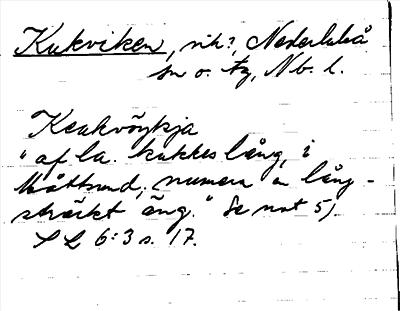 Kukviken, vik?, Nederluleå
sn o. tg, Nb. l.
Keukvöykja
"af la. kukkes lång, i
Måttsund; numera en lång-
sträckt äng." Se not 5).
SL 6:3 s. 17.